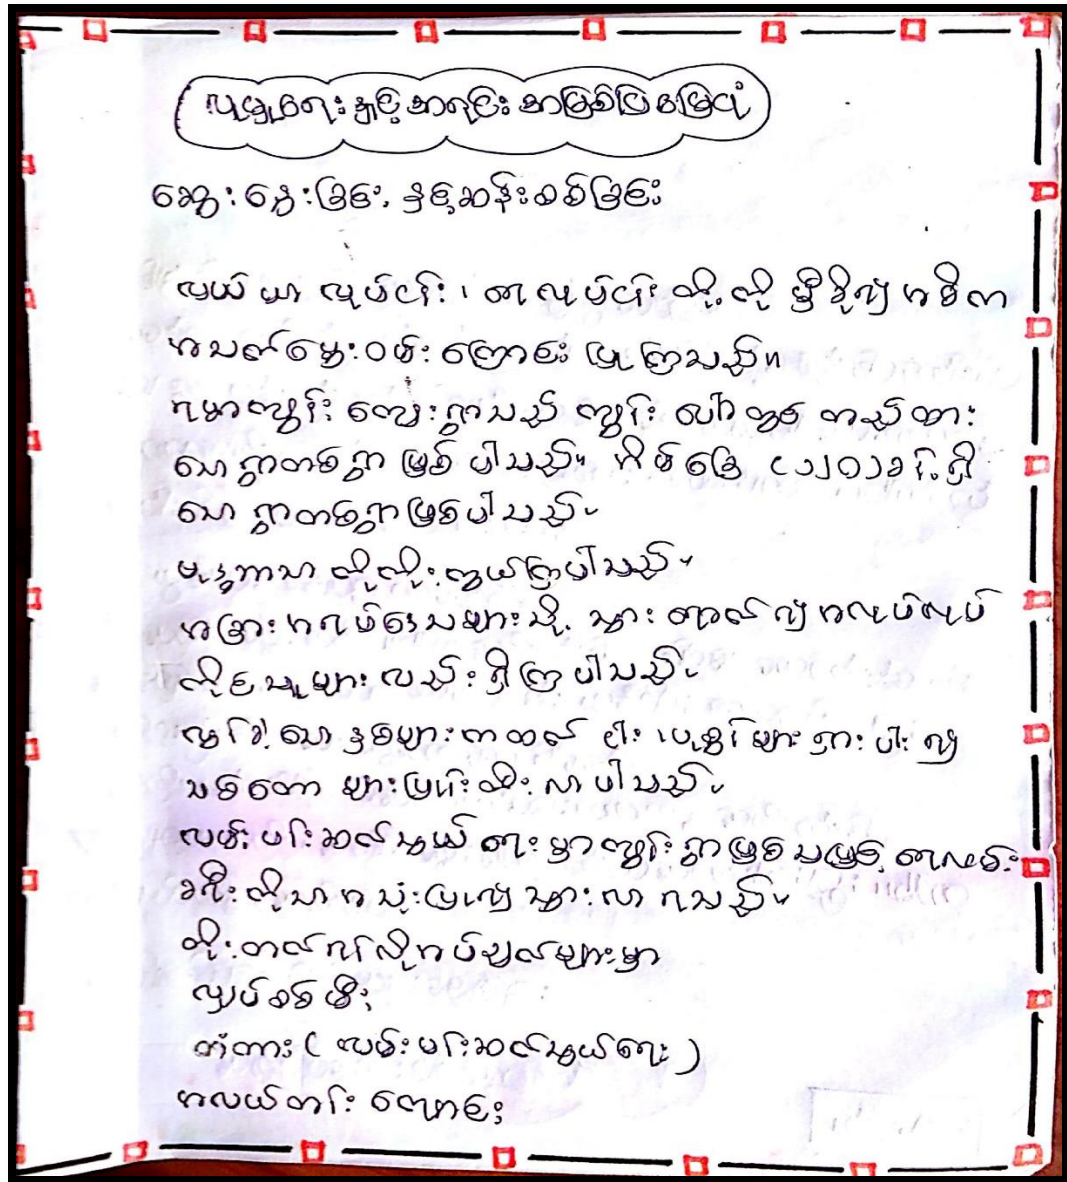 လူမှုရေးနှင့်အရင်းအမြစ်ပြမြေပုံ
ဆွေးနွေးခြင်း, နှင့်ဆန်းစစ်ခြင်း
လယ်ယာလုပ်ငန်း၊ ရေလုပ်ငန်း တို့ကို မှီခိုလျှ အဓိက
အသက်မွေးဝမ်းကြောင်း ပြုကြသည်။
ရမာကျွန်း ကျေးရွာသည် ကျွန်းပေါ်တွင် တည်ထား
သော ရွာတစ်ရွာ ဖြစ်ပါသည်။ အိမ်ခြေ (၁၂၀)ခန့်ရှိ
သော ရွာတစ်ရွာဖြစ်ပါသည်။
ဗုဒ္ဓဘာသာ ကိုးကွယ်ကြပါသည်။
အခြား အရပ်ဒေသများသို့ သွား ရောက်လျှ အလုပ်လုပ်
ကိုင်သူများ လည်း ရှိကြပါသည်။
လွန်ခဲ့သော နှစ်များကထက် ငါး ၊ပုစွန်များ ရှားပါးလျှ
သစ်တောများပြုန်းတီးလာပါသည်။
လမ်းပန်းဆက်သွယ်ရေးမှာ ကျွန်းရွာဖြစ်သဖြင့် ရေလမ်း
ခရီးကိုသာ အသုံးပြုလျှ သွားလာရသည်။
တိုးတက်ရန်လိုအပ်ချက်များမှာ
လျှပ်စစ်မီး
တံတား ( လမ်းပန်းဆက်သွယ်ရေး )
အလယ်တန်း ကျောင်း